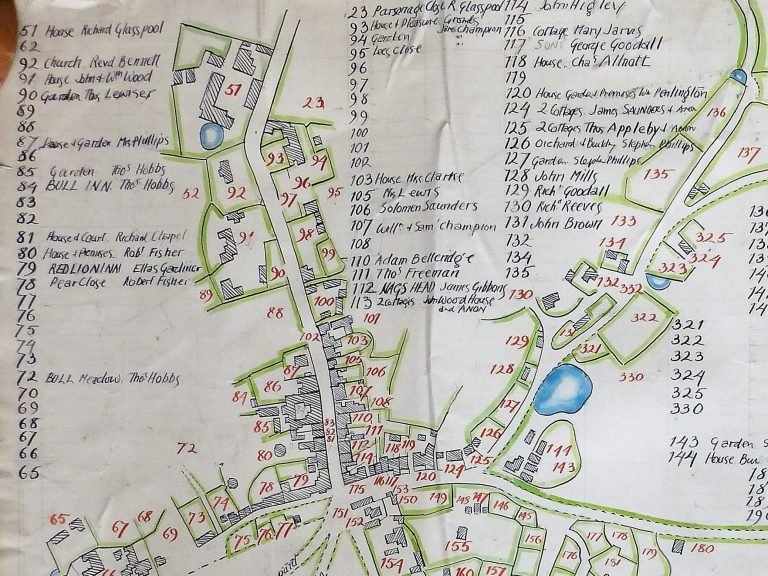 51 House Richard Glasspool
62
92 Church Revd Bennell
91 House John & Wm Wood
90 Garden Thos Lewiser
89
88
87 House & Garden Mrs Phillips
86
85 Garden Thos Hobbs
84 BULL INN. Thos Hobbs
83
82
81 House & Court. Richard Chapel
80 House & Premises. Robt Fisher
79 RED LION INN Elias Gardiner
78 Pear Close Robert Fisher
77
76
75
74
73
72 BULL Meadow. Thos Hobbs
70
69
68
67
66
65
23 Parsonage Close R Glasspool
93 House & Pleasure Grounds
94 Garden Jane Champion
95 Lees Close
96
97
98
99
100
101
102
103 House Mrs Clarke
105 Mrs Lewis
106 Solomon Saunders
107 Willm & Saml Champion
108
110 Adam Belleridge
111 Thos Freeman
112 NAGS HEAD James Gibbons
113 2 Cottages John Wood House and ANON
114 John Higley
115
116 Cottage Mary Jarvis
117 SUN George Goodall
118 House. Chas Allnott
119
120 House Garden & Premises Wm Penlington
124 2 Cottages James SAUNDERS & Anon
125 2 Cottages Thos Appleby & Anon
126 Orchard & Buildg Stephen Phillips
127 Garden Stephen Phillips
128 John Mills
129 Richd Goodall
130 Richd Reeves
131 John Brown
132
134
135
321
322
323
324
325
330
143 Garden
144 House
51
23
93
94
52
92
96
95
97
91
98
99
90
89
88
100
101
102
103
105
87
106
86
84
107
108
85
110
111
83
82
81
112
114
118
119
80
72
78
79
115
116
117
120
124
125
126
127
128
129
130
131
132
133
134
135
136
137
325
324
323
332
322
321
330
144
143
65
67
68
69
73
74
75
76
77
66
151
152
153
150
149
148
147
146
145
154
155
156
160
157
176
177
178
179
180
181